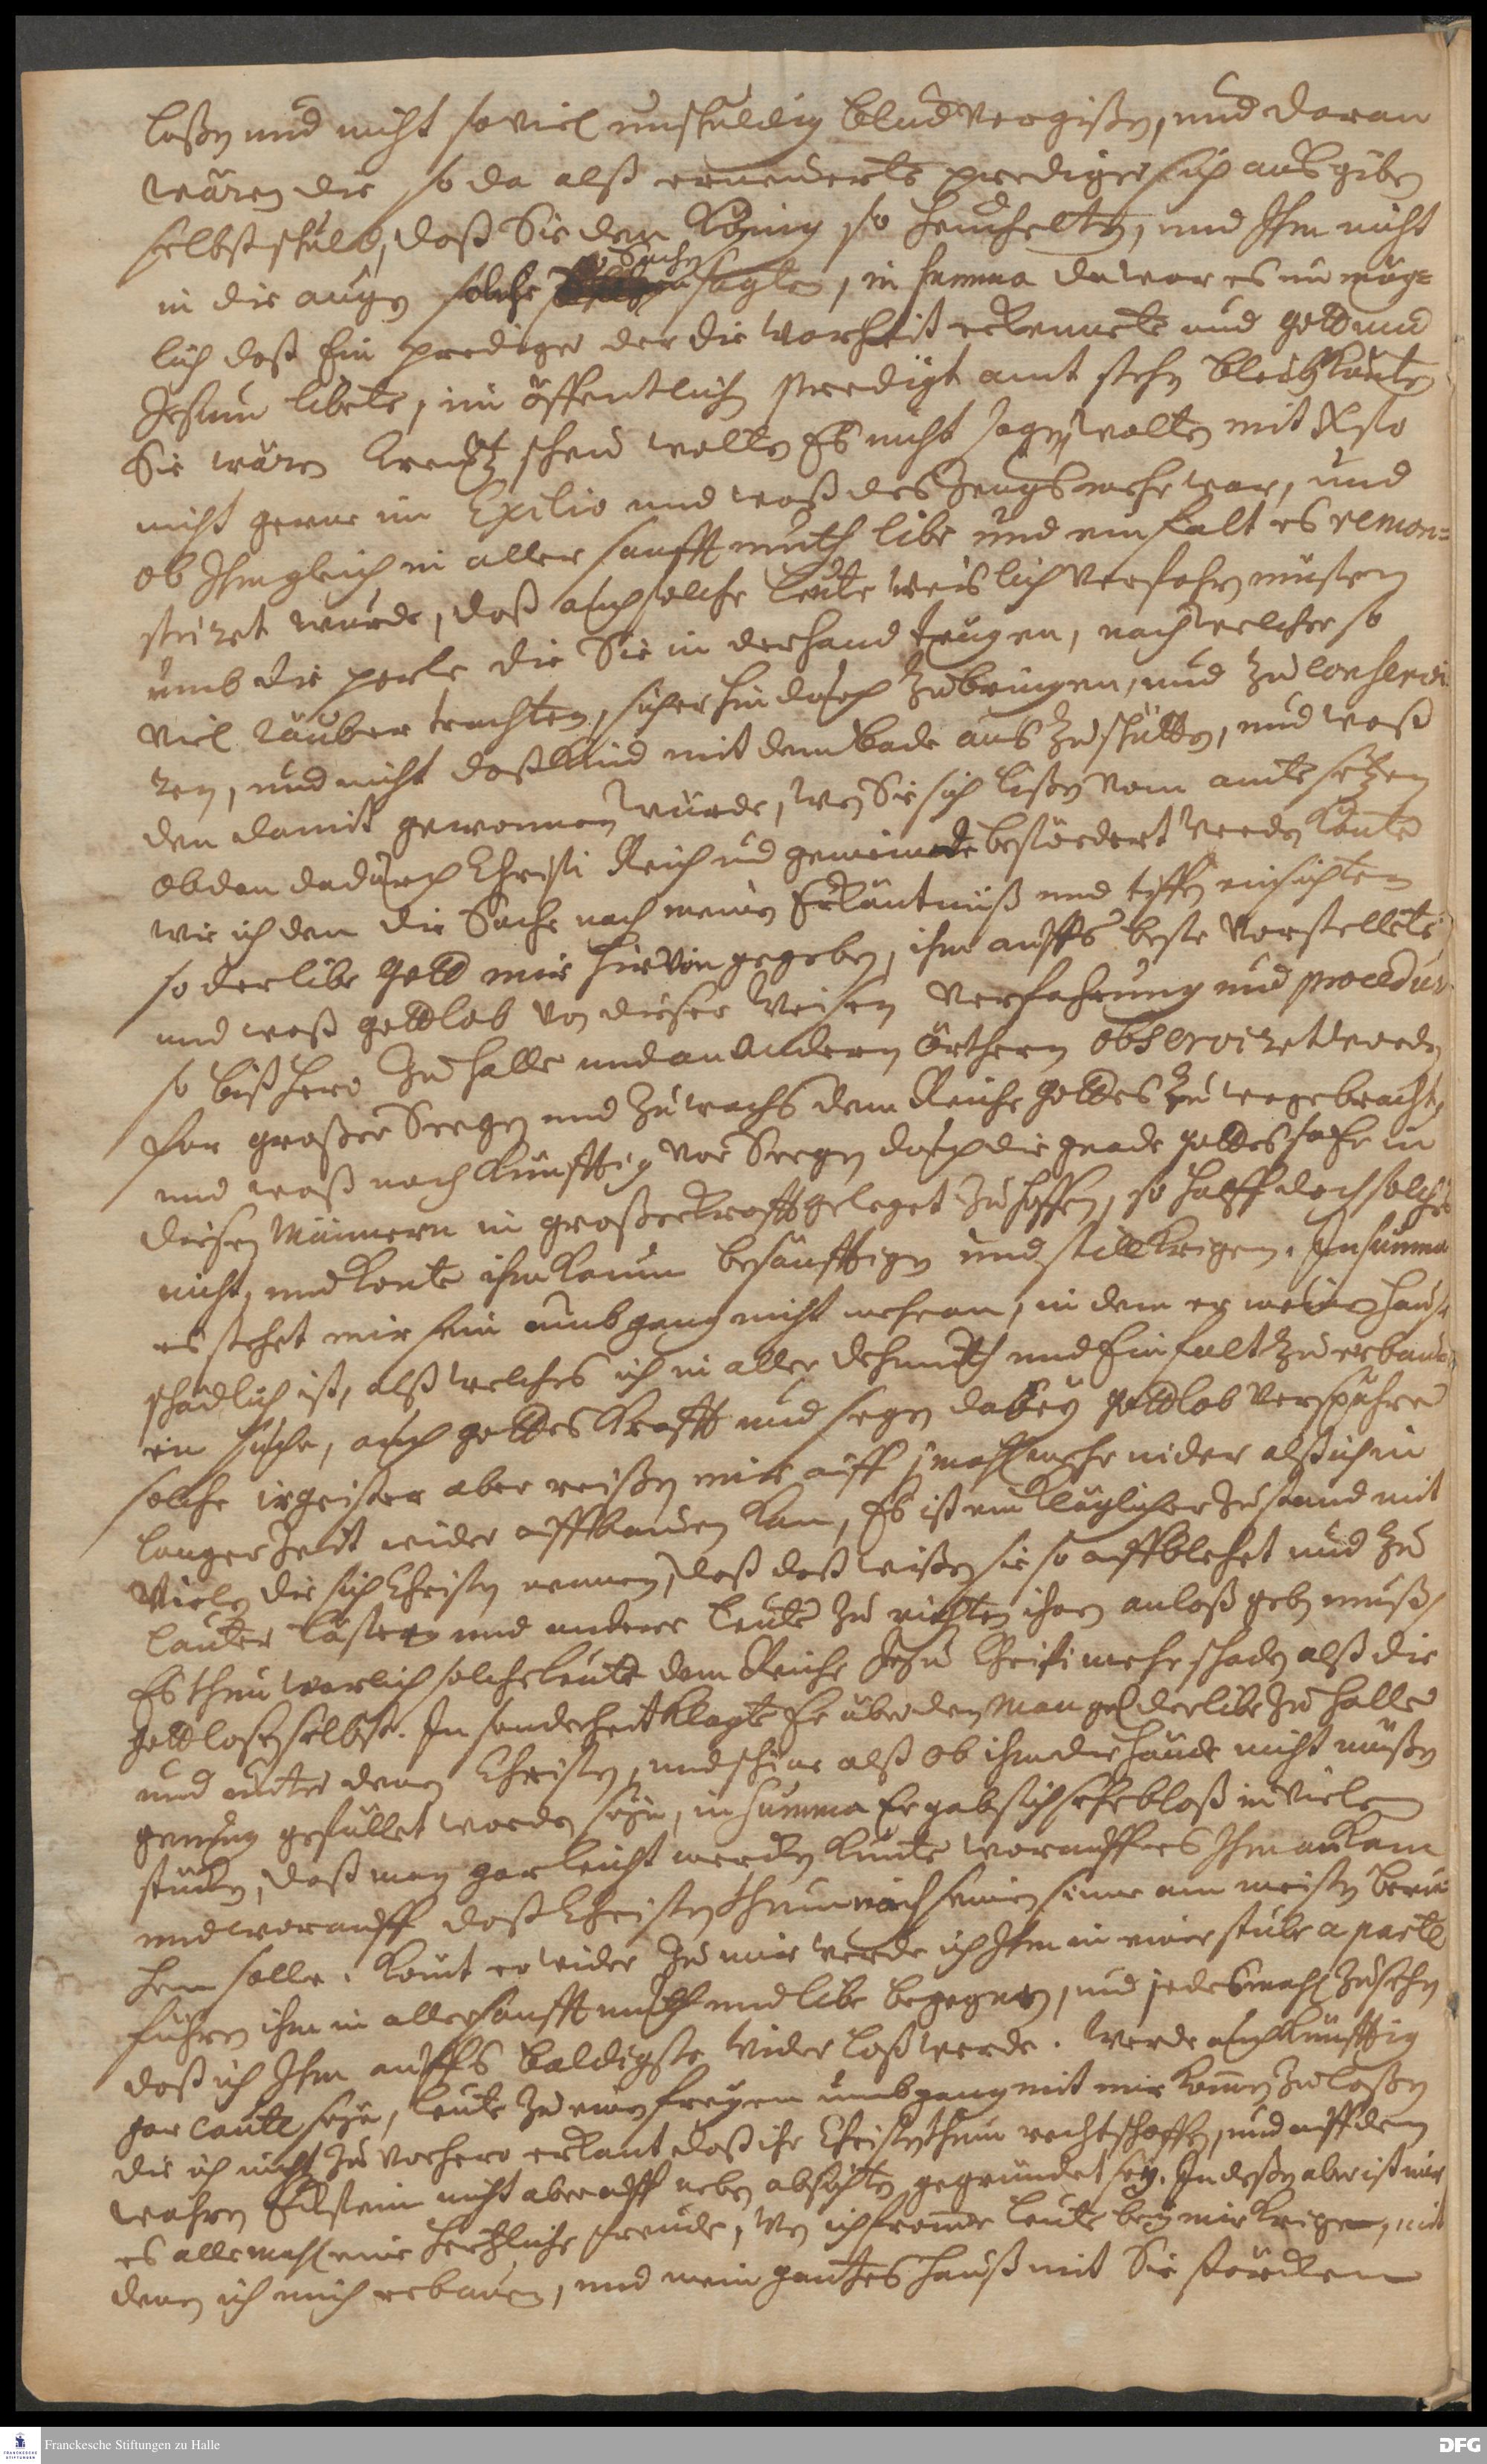 laßen und nicht so viel unschuldig Blud vergißen, und daran
wären die so da alß erneuderte prediger sich ausgiben
selbst schuld, daß Sie den König so heuchelten, und Ihm nicht
in die augen solche Sachen sagten, in summa da war es unmög=
lich daß Ein prediger der die Warheit erkennete und Gott und
Jesum libete, im öffentlich predigt amt stehn bleiben könte
Sie wären Kreutz scheu wolten Es nicht sagen, wolten mit Xsto
nicht gerne im Exilio und waß des Zeugs mehr war, und
ob Ihm gleich in aller sanfftmuth libe und einfalt es remon=
striret wurde, daß auch solche leute weislich verfahren müsten
umb die perle die Sie in der hand trugen, nach welcher so
viel räuber trachten, sicher hindurch zubringen, und zu conservi
ren, und nicht daß Kind mit dem bade aus zu schütten, und waß
den damit gewonnen würde, wen Sie sich lißen vom amte setzen
ob den dadurch Christi Reich und gemeinde befördert werden könte
wie ich den die Sache nach meiner Erkäntnüß und tiffen einsichten
so der libe Gott mir hirvon gegeben, ihm auffs beste vorstellete
und waß gottlob von dieser weisen verfahrung und procedur
so bißhero zu Halle und an andern örthern observiret worden
for großer Seegen und zuwachs dem Reiche Gottes zu wege bracht,
und waß noch künfftig vor Seegen durch die gnade gottes so Er in
diesen Männern in großer krafft geleget zu hoffen, so halff doch solches
nicht, und konte ihn kaum besänfftigen und still krigen. In summa
es stehet mir sein umbgang nicht mehr an, in dem er meinem hause
schädlich ist, alß welches ich in aller dehmuth und Einfalt zu erbau
en suche, auch gottes krafft und segen dabey gottlob verspühre
solche irgeister aber reißen mir auff 1 mahl mehr nider alß ich in
langer Zeit wider auffbauen kan, Es ist ein kläglicher Zustand mit
vielen die sich Christen nennen, daß daß wißen sie so auffblehet und zu
lauter lästern und anderer leute zu richten ihnen anlaß geben muß,
Es thun warlich solche leute dem Reiche Jesu Christi mehr schaden alß die
gottlosen selbst. In sonderheit klagte Er über den Mangel der libe zu Halle
und unter denen Christen, und schine alß ob ihm die hände nicht müßen
genung gefüllet worden seyn, in summa Er gab sich sehr bloß in vielen
stücken, daß man gar leicht mercken kunte worauff es Ihm ankam
und worauff daß Christenthum nach seinem sinne am meisten beru
hen solle. Komt er wider zu mir werde ich Ihm in einer stube a parte
führen ihm in aller sanfftmuth und libe begegnen, und jedesmahl zusehn
daß ich Ihm auffs baldigste wider loß werde. Werde auch künfftig
gar caute seyn, leute zu einen freyen umbgang mit mir komen zu laßen
die ich nicht zu vorhero erkant daß ihr Christenthum rechtschaffen, und auff dem
wahren Eckstein nicht aber auff neben absichten gegründet sey. In deßen aber ist mir
es alle mahl eine hertzliche freude, wen ich fromme leute bey mir krige, mit
denen ich mich erbauen, und mein gantzes hauß mit Sie stärcken
Franckesche Stiftungen zu Halle
DFG